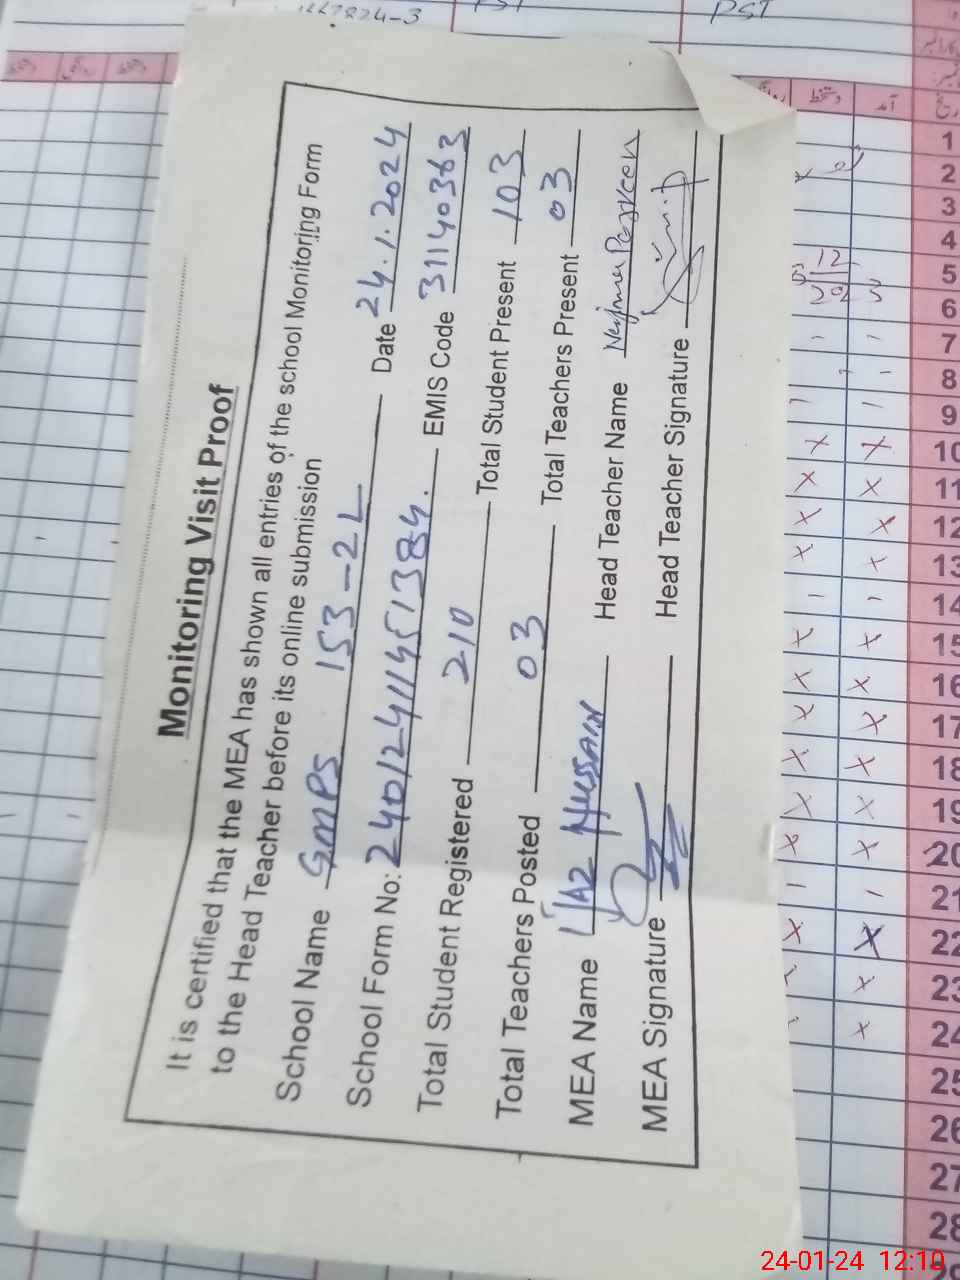 Monitoring Visit Proof
It is certified that the MEA has shown all entries of the school Monitoring Form
to the Head Teacher before its online submission
School Name GMPS 153-2L Date 24.1.2024
School Form No: 24012411451384. EMIS Code 31140363
Total Student Registered 210 Total Student Present 103
Total Teachers Posted 03 Total Teachers Present 03
MEA Name IJAZ HUSSAIN Head Teacher Name Najma Parveen
MEA Signature Head Teacher Signature
PST
دستخط آمد
1
2
3
4
12 5
20 3 6
7
8
9
10
11
12
13
14
15
16
17
18
19
20
21
22
23
24
25
26
27
28
24-01-24 12:10